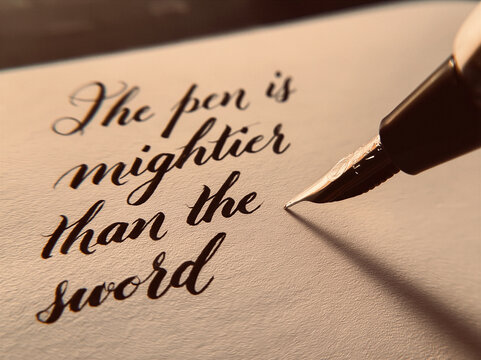 The pen is
mightier
than the
sword